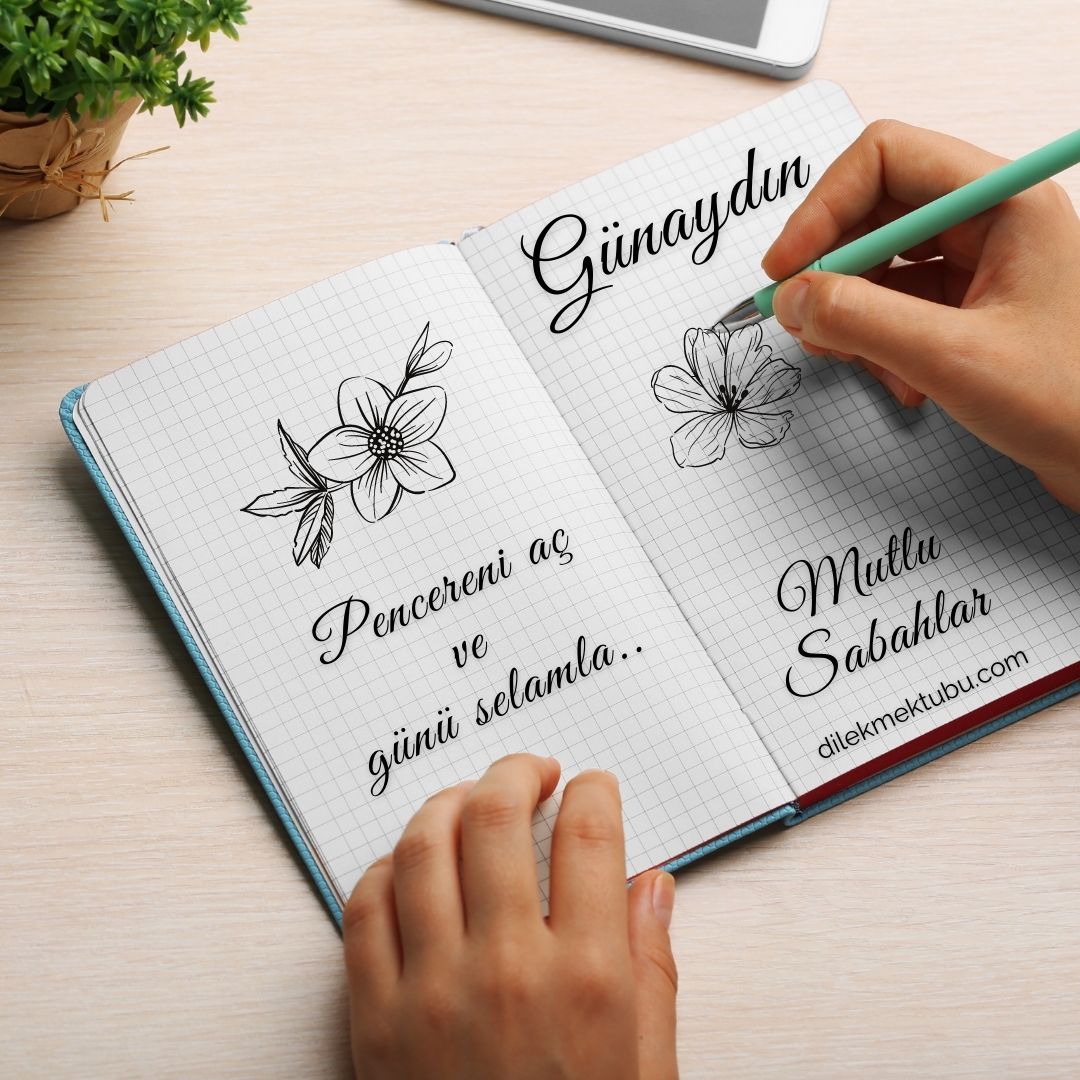 Pencereni aç
ve
günü selamla..
Günaydın
Mutlu
Sabahlar
dilekmektubu.com